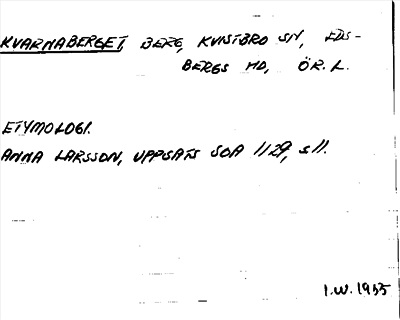 KVARNABERGET, BERG, KVISTBRO SN, EDS-
BERGS HD, ÖR. L.
ETYMOLOGI.
ANNA LARSSON, UPPSATS SOA 1129, s 11.
I.W. 1955